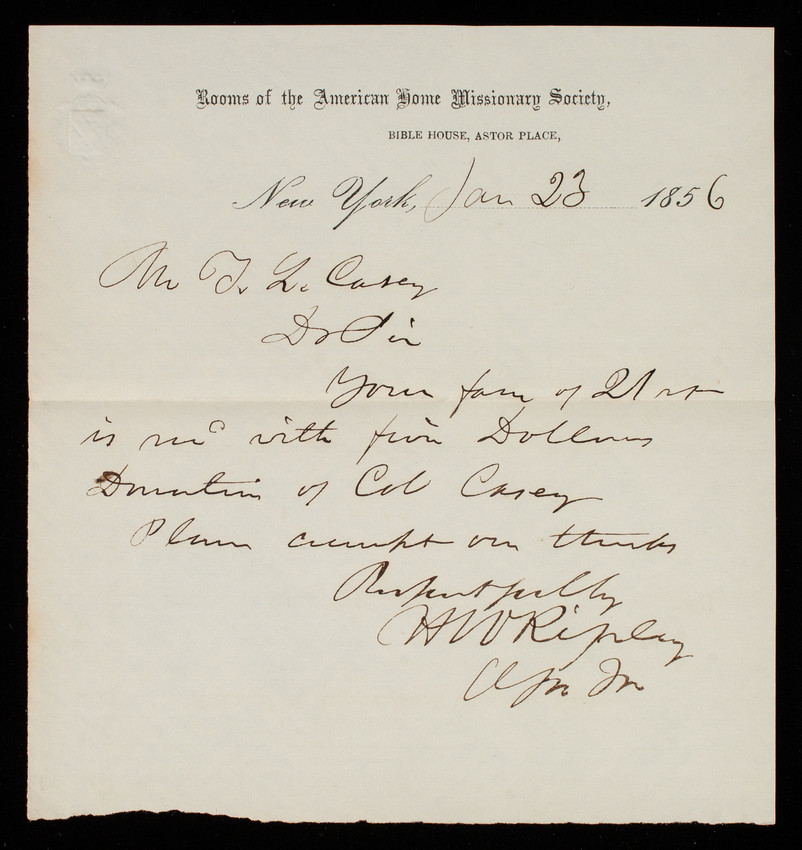 Rooms of the American Home Missionary Society,
BIBLE HOUSE, ASTOR PLACE,
New York, Jan 23 1856
Mr T. L. Casey
Dr Sir
Your favr of 21st
is recd with five Dollars
Donation of Col Casey
Please accept our thanks
Respectfully
H W Ripley